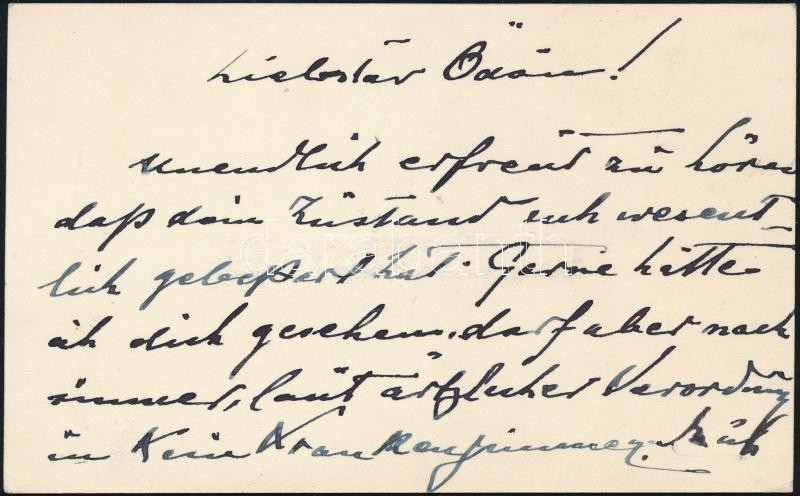 Liebster Ödön!
unendlich erfreut zu hören
daß dein Zustand sich wesent-
lich gebeßert hat. Gerne hätte
ich dich gesehen, darf aber noch
immer, laut ärztlicher Verordnung
in kein Krankenzimmer.
darabanth